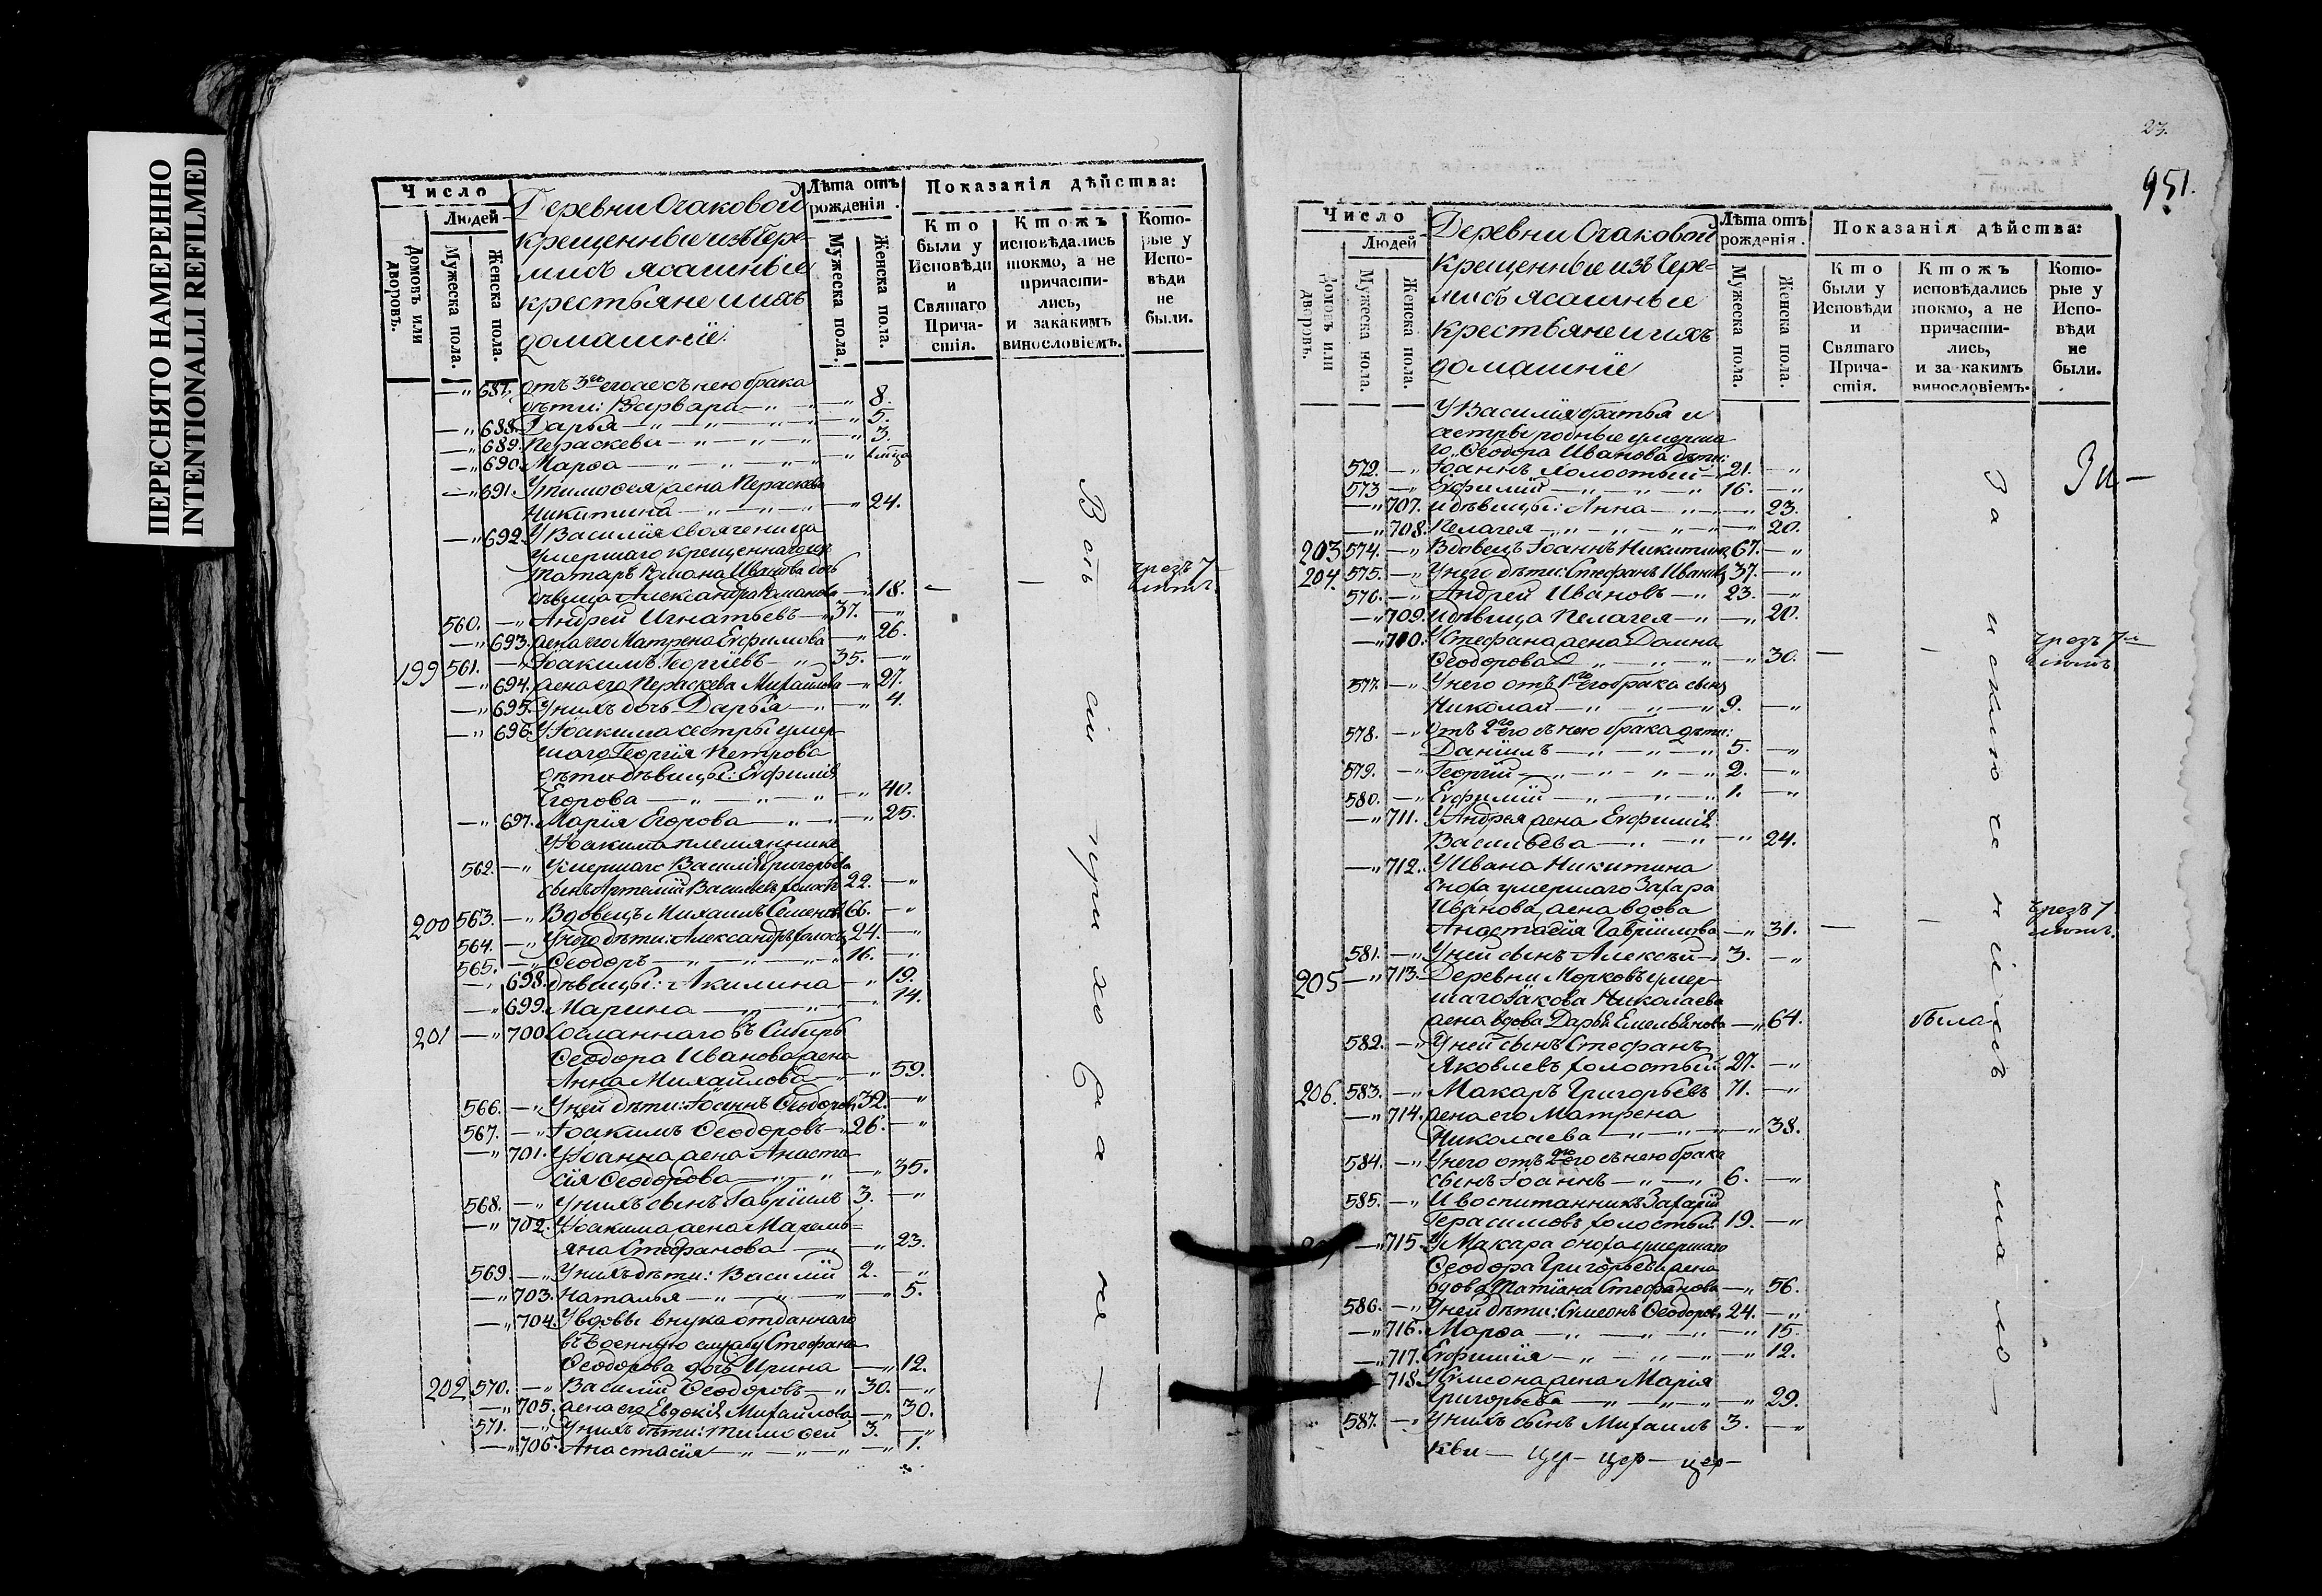 ПЕРЕСНЯТО НАМЕРЕННО
INTENTIONALLI REFILMED
Число
Людей
Домовъ или дворовъ.
Мужеска пола.
Женска пола.
Деревни Очаковой
крещенные изъ Чере-
мисъ ясашные
крестьяне и ихъ
домашніе:
Лѣта отъ рожденія.
Мужеска пола.
Женска пола.
Показанія дѣйства:
Кто были у Исповѣди и Святаго Прича-стія.
Ктожъ исповѣдались токмо, а не причасти-лись, и закакимъ винословіемъ.
Кото-рые у Испо-вѣди не были.
—„ 687. отъ 3го его же съ нею брака
дѣти: Варвара —„ —„ 8.
—„ 688. Дарья —„ —„ —„ 5.
—„ 689. Пераскева —„ —„ —„ 3.
—„ 690. Марѳа —„ —„ —„
—„ 691. У Тимоѳея жена Пераскева
Никитина —„ —„ —„ 24.
—„ 692. У Василія свояченица
умершаго крещеннаго изъ
татаръ Романа Иванова дочь
дѣвица Александра Романова —„ 18. — — чрезъ 7
560. —„ Андрей Игнатьевъ —„ 37. —„
—„ 693. жена его Матрена Евфимова —„ 26.
199 561. —„ Іоакимъ Георгіевъ —„ 35. —„
—„ 694. жена его Пераскева Михайлова —„ 27.
—„ 695. У нихъ дочь Дарья —„ —„ 4.
—„ 696. У Іоакима сестры умер-
шаго Георгія Петрова
дѣти дѣвицы: Евфимія
Егорова —„ —„ —„ 40.
—„ 697. Марія Егорова —„ —„ 25.
У Іоакима племянникъ
562. —„ умершаго Василія Григорьева
сынъ Артемій Васильевъ холостъ 22. —„
200 563. —„ Вдовецъ Михаилъ Семеновъ 66. —„
564. —„ У него дѣти: Александръ холостъ 24. —„
565. —„ Ѳеодоръ —„ —„ —„ 16. —„
—„ 698. дѣвицы: Акилина —„ 19.
—„ 699. Марина —„ —„ 14.
201 —„ 700. Сосланнаго въ Сибирь
Ѳеодора Иванова жена
Анна Михайлова —„ —„ 59.
566. —„ У ней дѣти: Іоаннъ Ѳеодоровъ 32. —„
567. —„ Іоакимъ Ѳеодоровъ —„ 26. —„
—„ 701. У Іоанна жена Анаста-
сія Ѳеодорова —„ —„ 35.
568. —„ У нихъ сынъ Гавріилъ 3. —„
—„ 702. У Іоакима жена Маремь-
яна Стефанова —„ —„ 23.
569. —„ У нихъ дѣти: Василій 2. —„
—„ 703. Наталья —„ —„ —„ 5.
—„ 704. У вдовы внука отданнаго
въ военную службу Стефана
Ѳеодорова дочь Ирина —„ 12.
202 570. —„ Василій Ѳеодоровъ —„ 30. —„
—„ 705. жена его Евдокія Михайлова —„ 30.
571. —„ У нихъ дѣти: Тимоѳей 3. —„
—„ 706. Анастасія —„ —„ —„ 1.
Вотъ сіи
23.
951.
Число
Людей
Домовъ или дворовъ.
Мужеска пола.
Женска пола.
Деревни Очаковой
крещенные изъ Чере-
мисъ ясашные
крестьяне и ихъ
домашніе
Лѣта отъ рожденія.
Мужеска пола.
Женска пола.
Показанія дѣйства:
Кто были у Исповѣди и Святаго Прича-стія.
Ктожъ исповѣдались токмо, а не причасти-лись, и за какимъ винословіемъ.
Кото-рые у Испо-вѣди не были.
У Василія братья и
сестры родные умерша
го Ѳеодора Иванова дѣти:
572. —„ Іоаннъ холостый —„ 21. —„
573 —„ Евфимій —„ —„ —„ 16. —„
—„ 707. и дѣвицы: Анна —„ —„ 23.
—„ 708. Пелагея —„ —„ —„ 20.
203 574. —„ Вдовецъ Іоаннъ Никитинъ 67. —„
204 575. —„ У него дѣти: Стефанъ Ивановъ 37. —„
576. —„ Андрей Ивановъ —„ 23. —„
—„ 709. и дѣвица Пелагея —„ —„ 20.
—„ 710. У Стефана жена Домна
Ѳеодорова —„ —„ —„ 30. — — чрезъ 7
577. —„ У него отъ 1го его брака сынъ
Николай —„ —„ —„ 9. —„
578. —„ отъ 2го его съ нею брака дѣти:
Даніилъ —„ —„ —„ 5. —„
579. —„ Георгій —„ —„ —„ 2. —„
580. —„ Евфимій —„ —„ —„ 1. —„
—„ 711. У Андрея жена Евфимія
Васильева —„ —„ —„ 24.
—„ 712. У Ивана Никитина
сноха умершаго Захара
Иванова жена вдова
Анастасія Гавріилова —„ 31. — — чрезъ 7
581. —„ У ней сынъ Алексѣй —„ 3. —„
205 —„ 713. Деревни Морковъ умер-
шаго Іакова Николаева
жена вдова Дарья Емельянова —„ 64. была
582. —„ У ней сынъ Стефанъ
Яковлевъ холостый 27. —„
206. 583. —„ Макаръ Григорьевъ 71. —„
—„ 714. жена его Матрена
Николаева —„ —„ —„ 38.
584. —„ У него отъ 2го его съ нею брака
сынъ Іоаннъ —„ —„ 6. —„
585. —„ И воспитанникъ Захарій
Герасимовъ холостый 19. —„
—„ 715. У Макара сноха умершаго
Ѳеодора Григорьева жена
вдова Татіана Стефанова —„ 56.
586. —„ У ней дѣти: Симеонъ Ѳеодоровъ 24. —„
—„ 716. Марѳа —„ —„ —„ 15.
—„ 717. Евфимія —„ —„ —„ 12.
718. У Симеона жена Марія
Григорьева —„ —„ —„ 29.
587. —„ У нихъ сынъ Михаилъ 3. —„
кви — цер — цер — цер —
За исключеніемъ